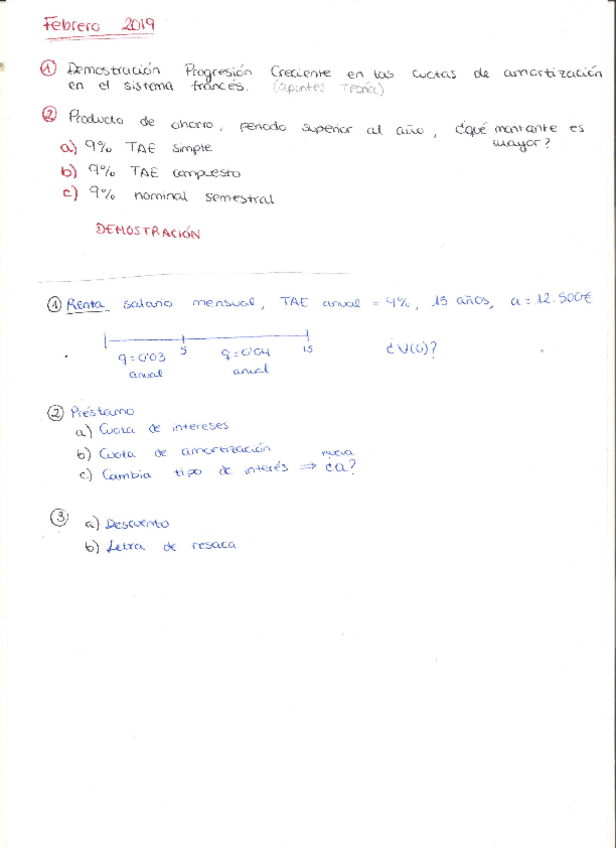 Febrero 2019
① Demostración Progresión Creciente en las cuotas de amortización
en el sistema francés. (apuntes Teoría)
② Producto de ahorro, periodo superior al año, ¿qué montante es
mayor?
a) 9% TAE simple
b) 9% TAE compuesto
c) 9% nominal semestral
DEMOSTRACIÓN
① Renta salario mensual, TAE anual = 4%, 15 años, a = 12.500€
5 15
q = 0'03 q = 0'04 ¿V(0)?
anual anual
② Préstamo
a) Cuota de intereses
b) Cuota de amortización
nueva
c) Cambia tipo de interés ⇒ ¿a?
③ a) Descuento
b) Letra de resaca